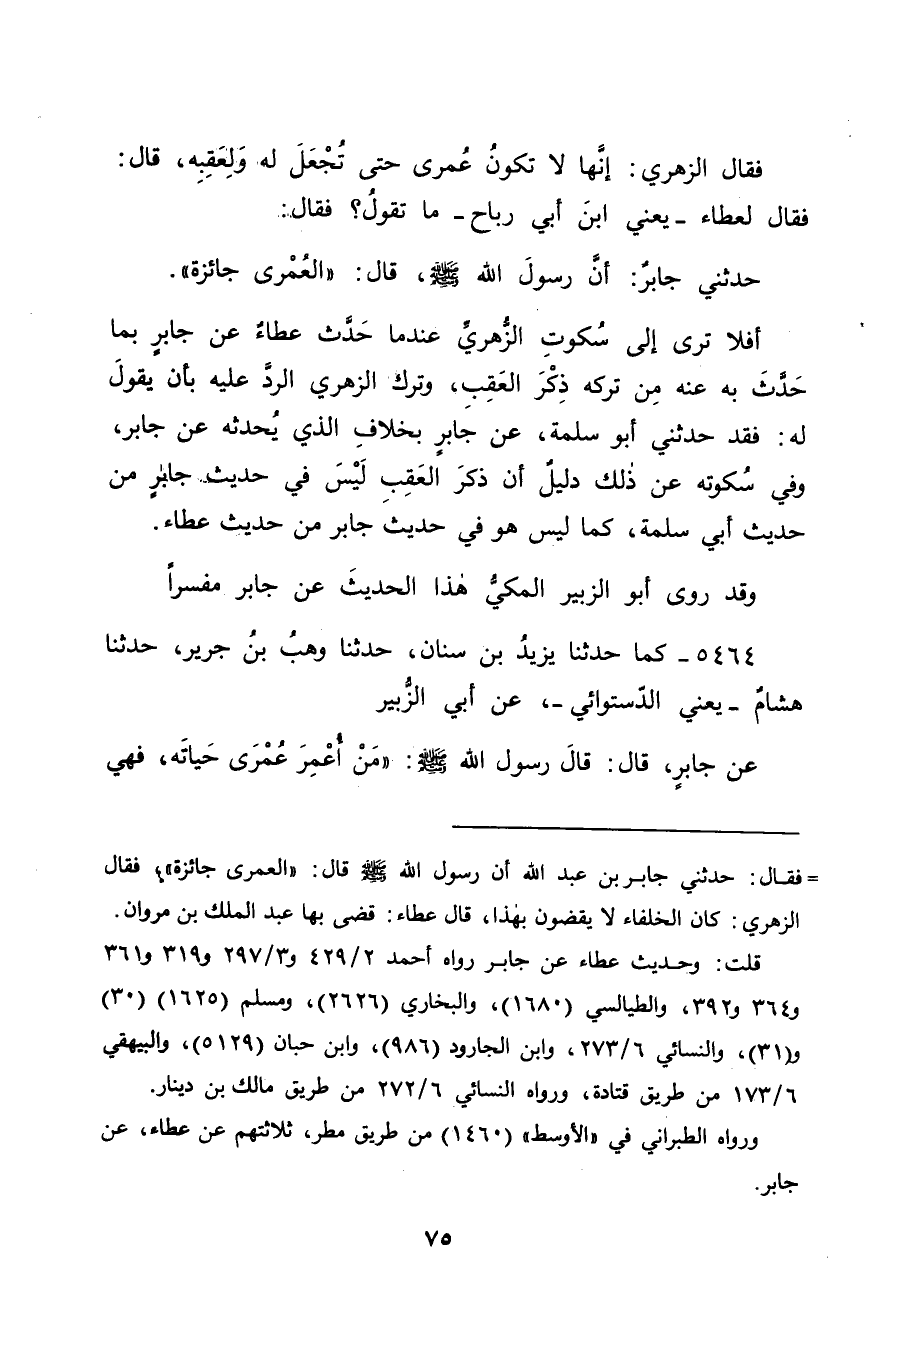 فقال الزهري: إنَّها لا تكونُ عُمرى حتى تُجْعَلَ له وَلِعَقِبِه، قال:
فقال لعطاء ـ يعني ابنَ أبي رباح ـ ما تقولُ؟ فقال:
حدثني جابرٌ: أنَّ رسولَ الله ﷺ، قال: «العُمْرى جائزة».
أفلا ترى إلى سُكوتِ الزُّهريِّ عندما حَدَّث عطاءٌ عن جابرٍ بما
حَدَّثَ به عنه مِن تركه ذِكْرَ العَقِبِ، وترك الزهري الردَّ عليه بأن يقولَ
له: فقد حدثني أبو سلمة، عن جابرٍ بخلافِ الذي يُحدثه عن جابر،
وفي سُكوته عن ذٰلك دليلٌ أن ذكرَ العَقِبِ لَيْسَ في حديث جابرٍ من
حديث أبي سلمة، كما ليس هو في حديث جابر من حديث عطاء.
وقد روى أبو الزبير المكيُّ هٰذا الحديثَ عن جابر مفسراً
٥٤٦٤ ـ كما حدثنا يزيدُ بن سنان، حدثنا وهبُ بنُ جرير، حدثنا
هشامٌ ـ يعني الدّستوائي ـ، عن أبي الزُّبير
عن جابرٍ، قال: قالَ رسول الله ﷺ: «مَنْ أُعْمِرَ عُمْرَى حَياتَه، فهي
= فقال: حدثني جابر بن عبد الله أن رسول الله ﷺ قال: «العمرى جائزة»، فقال
الزهري: كان الخلفاء لا يقضون بهٰذا، قال عطاء: قضى بها عبد الملك بن مروان.
قلت: وحديث عطاء عن جابر رواه أحمد ٤٢٩/٢ و٢٩٧/٣ و٣١٩ و٣٦١
و٣٦٤ و٣٩٢، والطيالسي (١٦٨٠)، والبخاري (٢٦٢٦)، ومسلم (١٦٢٥) (٣٠)
و(٣١)، والنسائي ٢٧٣/٦، وابن الجارود (٩٨٦)، وابن حبان (٥١٢٩)، والبيهقي
١٧٣/٦ من طريق قتادة، ورواه النسائي ٢٧٢/٦ من طريق مالك بن دينار.
ورواه الطبراني في «الأوسط» (١٤٦٠) من طريق مطر، ثلاثتهم عن عطاء، عن
جابر.
٧٥